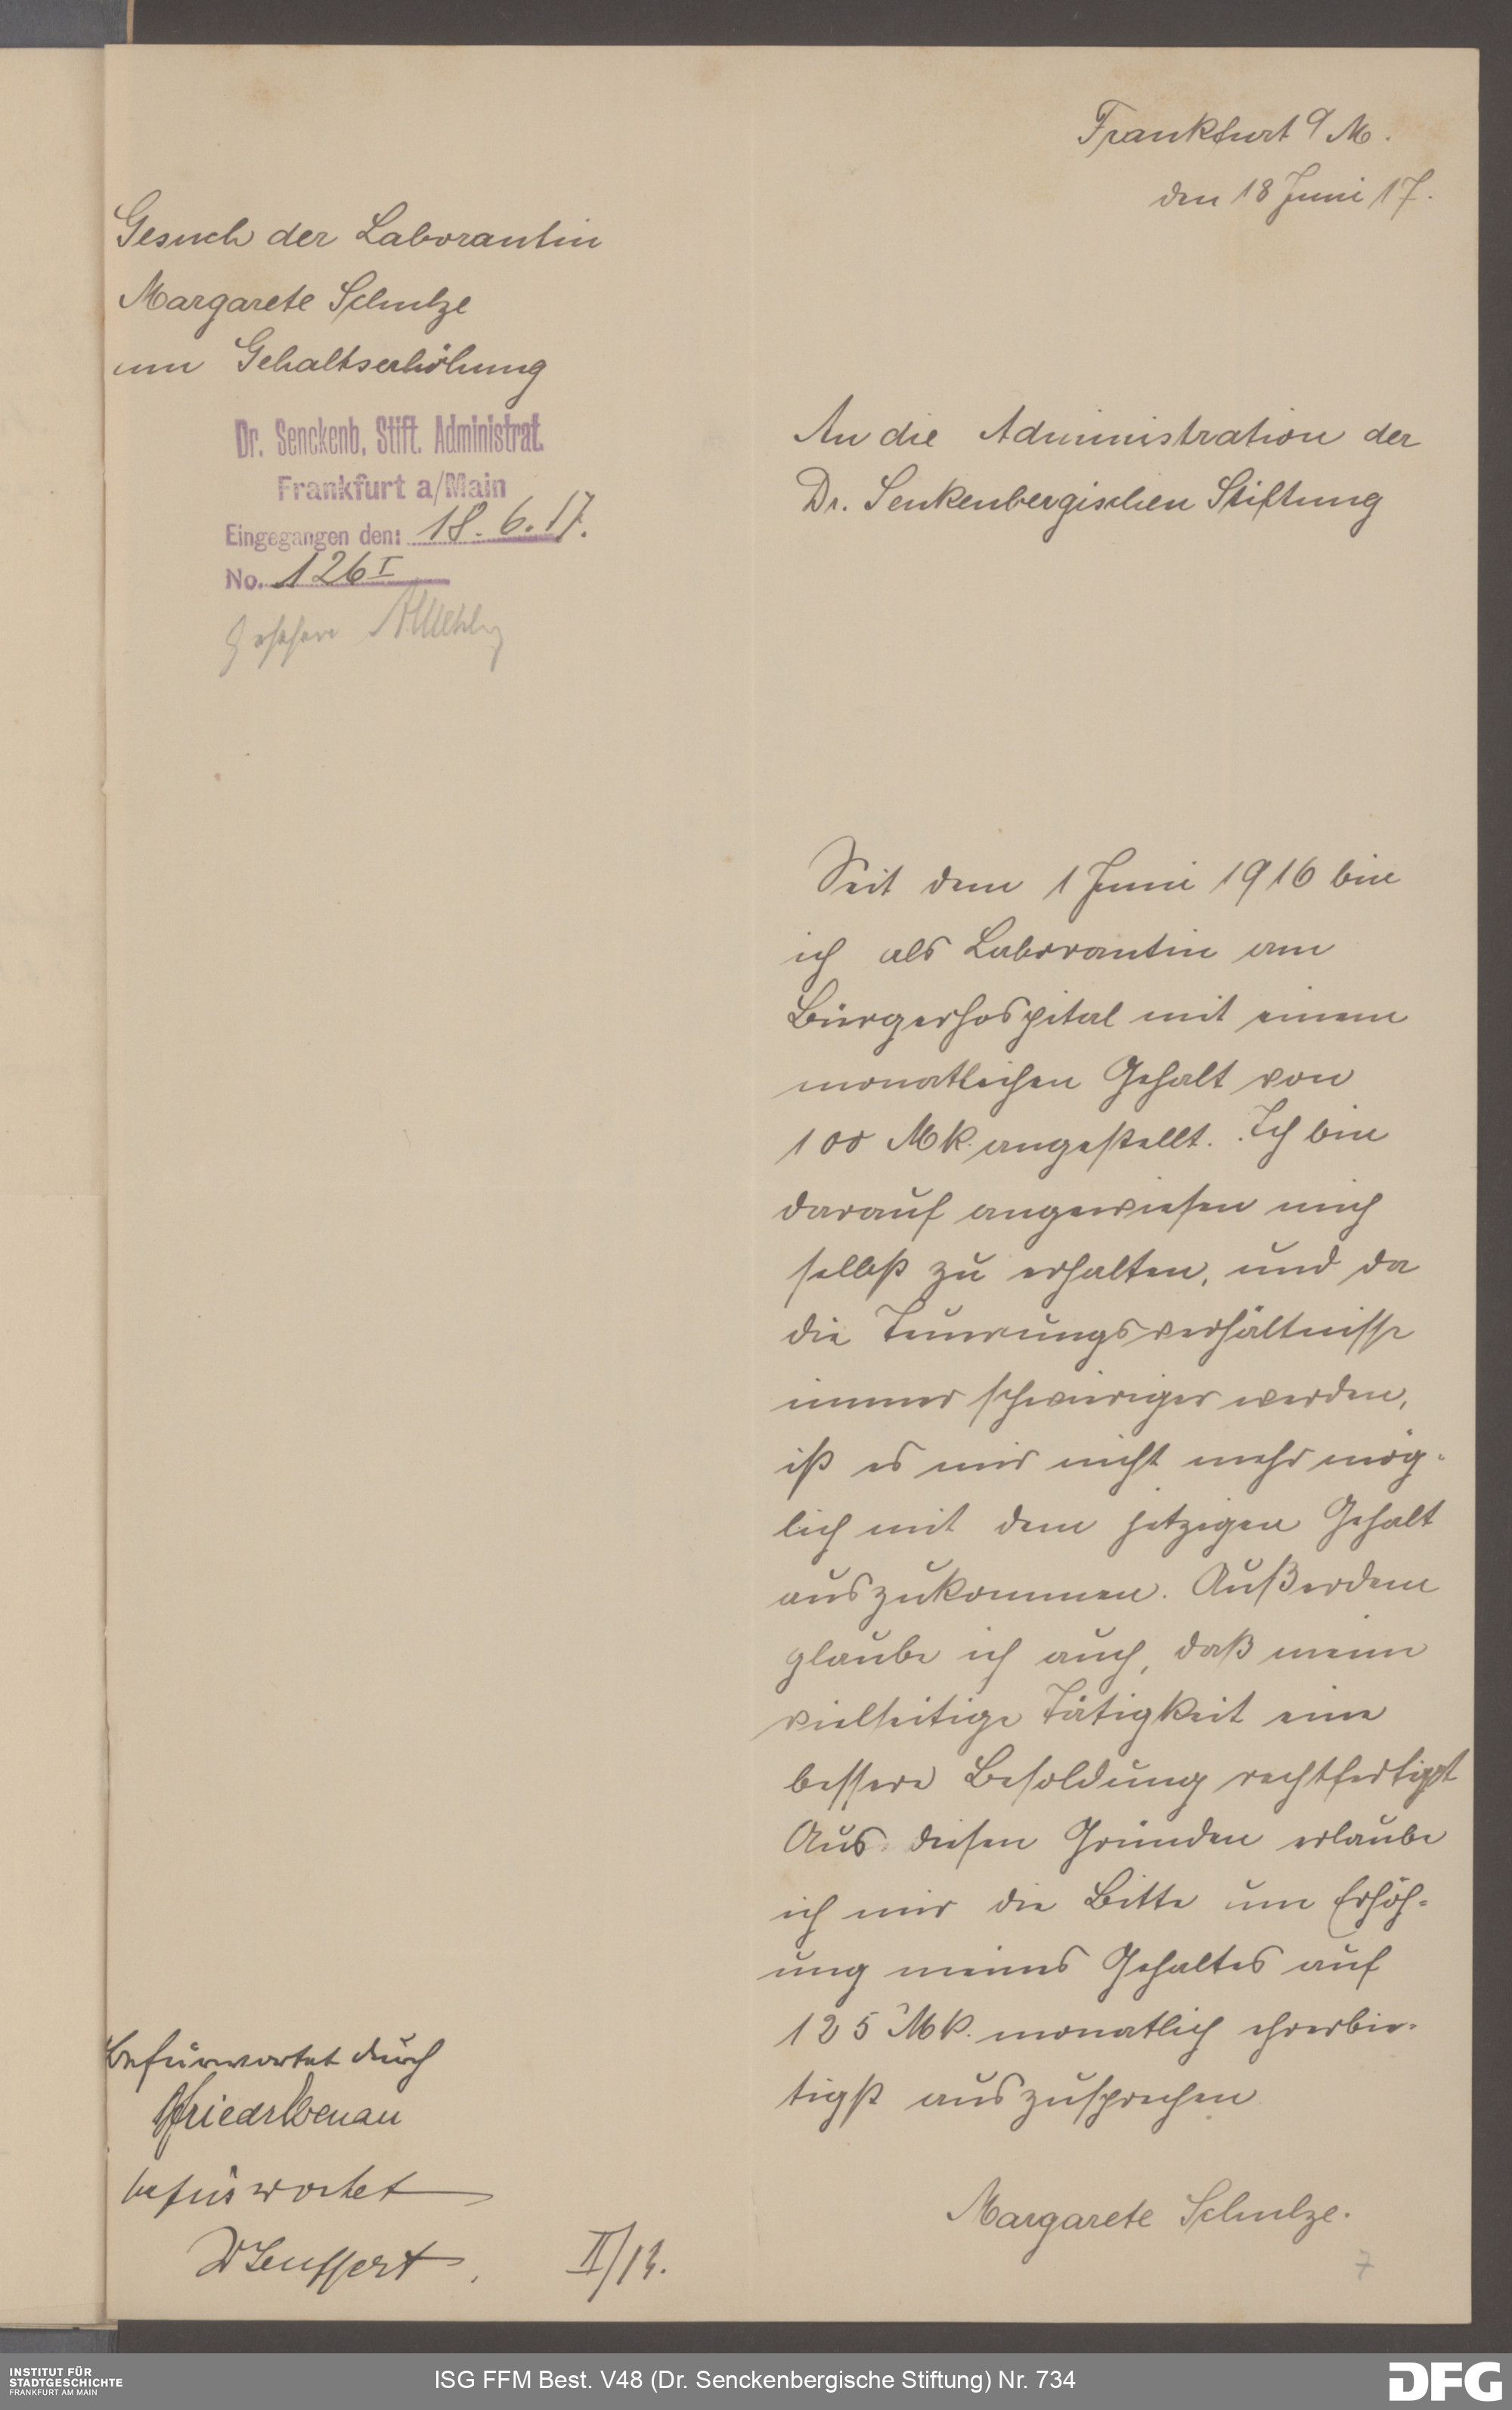 Frankfurt a/M.
den 18 Juni 17.
Gesuch der Laborantin
Margarete Schulze
um Gehaltserhöhung
Dr. Senckenb. Stift. Administrat.
Frankfurt a/Main
Eingegangen den: 18. 6. 17.
No. 126 I
Gesehen
An die Administration der
Dr. Senkenbergischen Stiftung
Seit dem 1 Juni 1916 bin
ich als Laborantin am
Bürgerhospital mit einem
monatlichen Gehalt von
100 Mk. angestellt. Ich bin
darauf angewiesen mich
selbst zu erhalten, und da
die Teuerungsverhältnisse
immer schwieriger werden,
ist es mir nicht mehr mög-
lich mit dem jetzigen Gehalt
auszukommen. Außerdem
glaube ich auch, daß meine
vielseitige Tätigkeit eine
bessere Besoldung rechtfertigt
Aus diesen Gründen erlaube
ich mir die Bitte um Erhöh-
ung meines Gehaltes auf
125 Mk. monatlich ehrerbie-
tigst auszusprechen
Margarete Schulze.
Befürwortet durch
befürwortet
II/13.
7
INSTITUT FÜR
STADTGESCHICHTE
FRANKFURT AM MAIN
ISG FFM Best. V48 (Dr. Senckenbergische Stiftung) Nr. 734
DFG